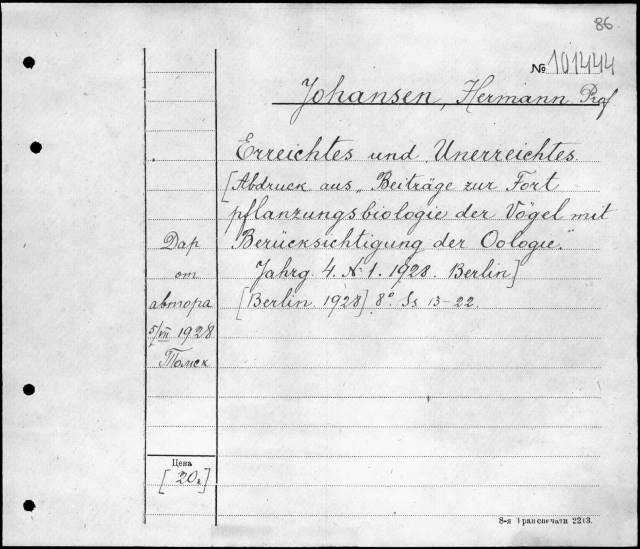 86
№ 101444
Johansen, Hermann Prof
Erreichtes und Unerreichtes.
[Abdruck aus „Beiträge zur Fort
pflanzungsbiologie der Vögel mit
Berücksichtigung der Oologie."
Jahrg. 4. № 1. 1928. Berlin]
[Berlin 1928] 8° Ss 13-22.
Дар
от
автора
5/VII 1928
Томск
Цена
[20к]
8-я Транспечати 2213.